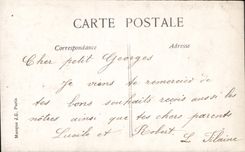 CARTE POSTALE
Correspondance
Adresse
Cher petit Georges
Je viens te remercier de
tes bons souhaits reçois aussi les
nôtres ainsi que tes chers parents
Lucile et Robert
L
Marque J.E. Paris